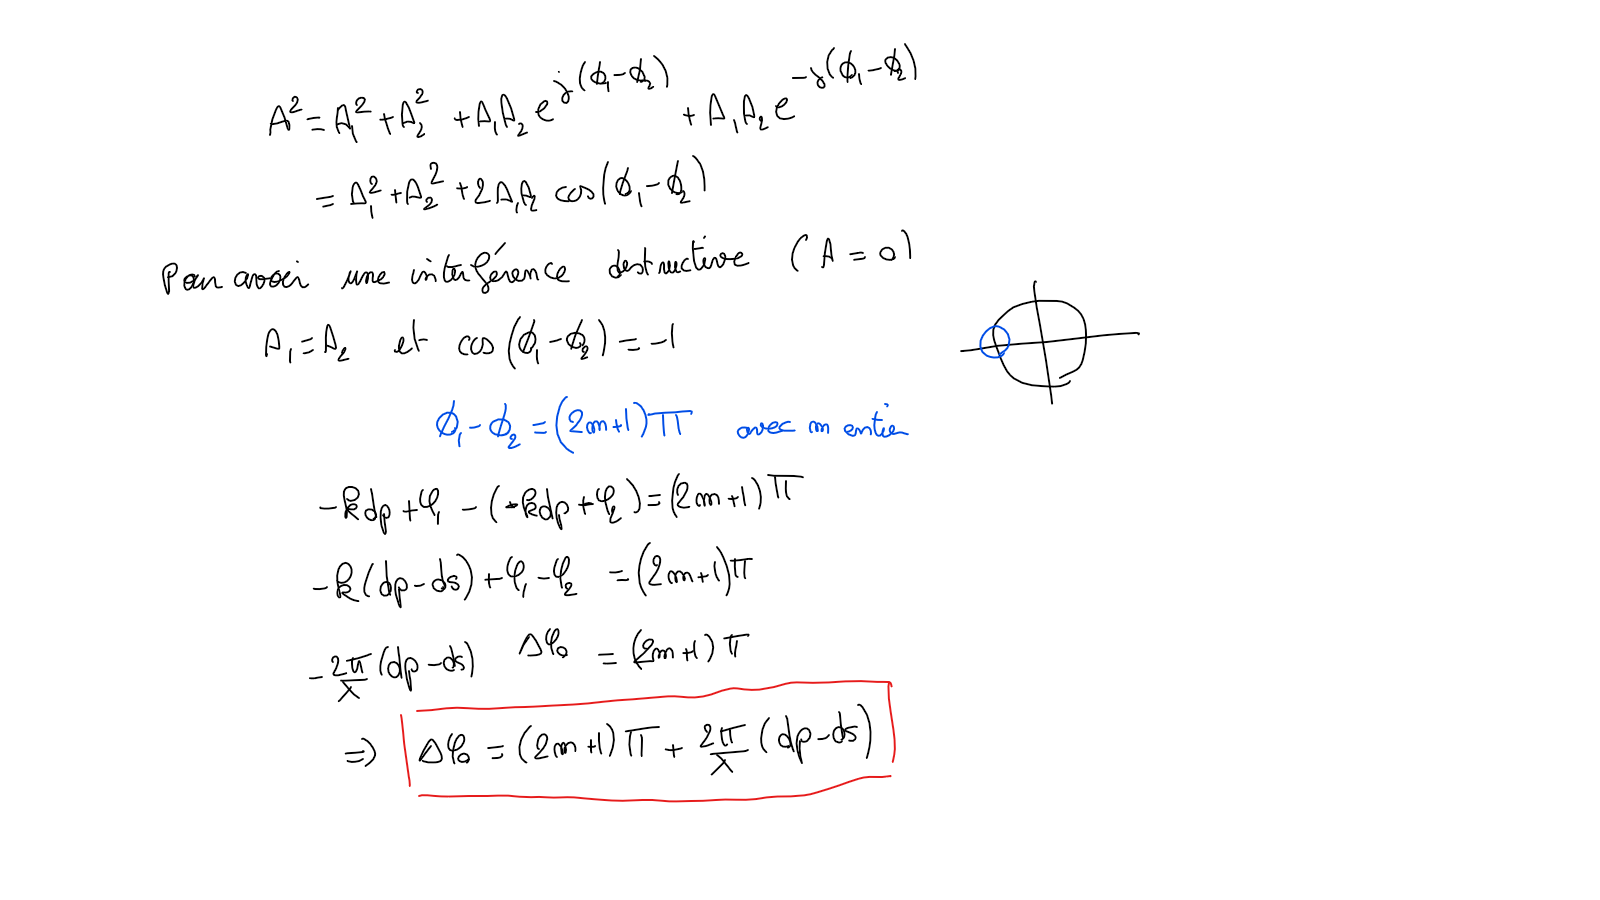 A² = A₁² + A₂² + A₁A₂ e^{j(ϕ₁-ϕ₂)} + A₁A₂ e^{-j(ϕ₁-ϕ₂)}
= A₁² + A₂² + 2A₁A₂ cos(ϕ₁-ϕ₂)
Pour avoir une interférence destructive (A = 0)
A₁ = A₂ et cos(ϕ₁-ϕ₂) = -1
ϕ₁ - ϕ₂ = (2m+1)π avec m entier
-kdp + φ₁ - (-kdp + φ₂) = (2m+1)π
-k(dp-ds) + φ₁ - φ₂ = (2m+1)π
-2π/λ (dp-ds) Δφ₀ = (2m+1)π
=> Δφ₀ = (2m+1)π + 2π/λ (dp-ds)